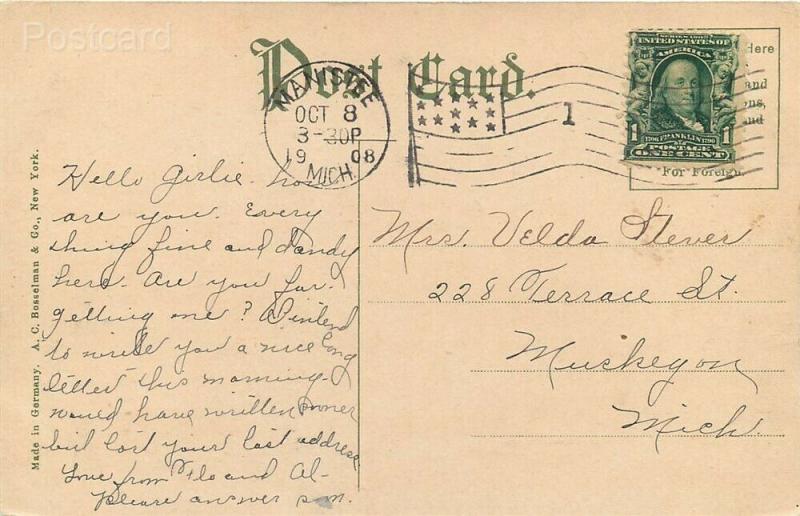 Postcard
Post Card.
MANISTEE
OCT 8
3-30P
1908
MICH.
1
SERIES 1902
UNITED STATES OF
AMERICA
1706 FRANKLIN 1790
1 1
POSTAGE
ONE CENT
Here
and
and
For Foreign
Made in Germany. A. C. Bosselman & Co., New York.
Hello Girlie. how
are you. Every
thing fine and dandy
here. Are you for-
getting me? I intend
to write you a nice long
letter this morning-
would have written sooner
but lost your last address.
Love from Flo and Al-
Please answer s-m.
Mrs. Velda Stever
228 Terrace St.
Muskegon
Mich.